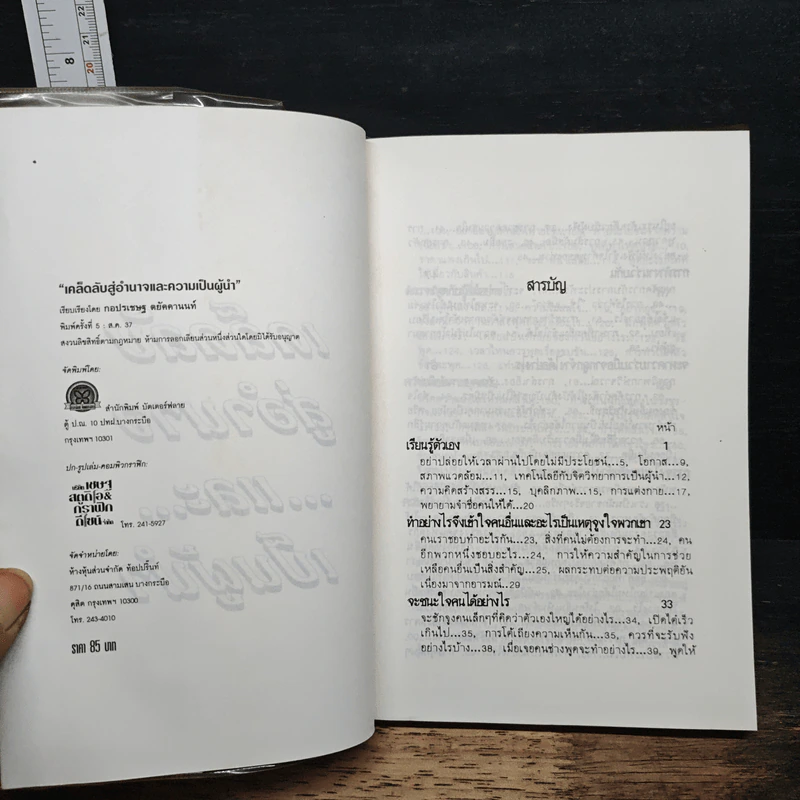 8
22
21
20
"เคล็ดลับสู่อำนาจและความเป็นผู้นำ"
เรียบเรียงโดย กอปรเชษฐ ตยัคคานนท์
พิมพ์ครั้งที่ 5 : ส.ค. 37
สงวนลิขสิทธิ์ตามกฎหมาย ห้ามการลอกเลียนส่วนหนึ่งส่วนใดโดยมิได้รับอนุญาต
จัดพิมพ์โดย:
สำนักพิมพ์ บัตเตอร์ฟลาย
ตู้ ป.ณ. 10 ปทฝ.บางกระบือ
กรุงเทพฯ 10301
ปก-รูปเล่ม-คอมพิวกราฟิก:
บริษัท เชษฐ
สตูดิโอ&
กราฟิค
ดีไซน์ จำกัด
โทร. 241-5927
จัดจำหน่ายโดย:
ห้างหุ้นส่วนจำกัด ท้อปปริ๊นท์
871/16 ถนนสามเสน บางกระบือ
ดุสิต กรุงเทพฯ 10300
โทร. 243-4010
ราคา 85 บาท
สารบัญ
หน้า
เรียนรู้ตัวเอง 1
อย่าปล่อยให้เวลาผ่านไปโดยไม่มีประโยชน์...5, โอกาส...9,
สภาพแวดล้อม...11, เทคโนโลยีกับจิตวิทยาการเป็นผู้นำ...12,
ความคิดสร้างสรร...15, บุคลิกภาพ...15, การแต่งกาย...17,
พยายามจำชื่อคนให้ได้...20
ทำอย่างไรจึงเข้าใจคนอื่นและอะไรเป็นเหตุจูงใจพวกเขา 23
คนเราชอบทำอะไรกัน...23, สิ่งที่คนไม่ต้องการจะทำ...24, คน
อีกพวกหนึ่งชอบอะไร...24, การให้ความสำคัญในการช่วย
เหลือคนอื่นเป็นสิ่งสำคัญ...25, ผลกระทบต่อความประพฤติอัน
เนื่องมาจากอารมณ์...29
จะชนะใจคนได้อย่างไร 33
จะชักจูงคนเล็กๆที่คิดว่าตัวเองใหญ่ได้อย่างไร...34, เปิดโต่เร็ว
เกินไป...35, การโต้เถียงความเห็นกัน...35, ควรที่จะรับฟัง
อย่างไรบ้าง...38, เมื่อเจอคนช่างพูดจะทำอย่างไร...39, พูดให้